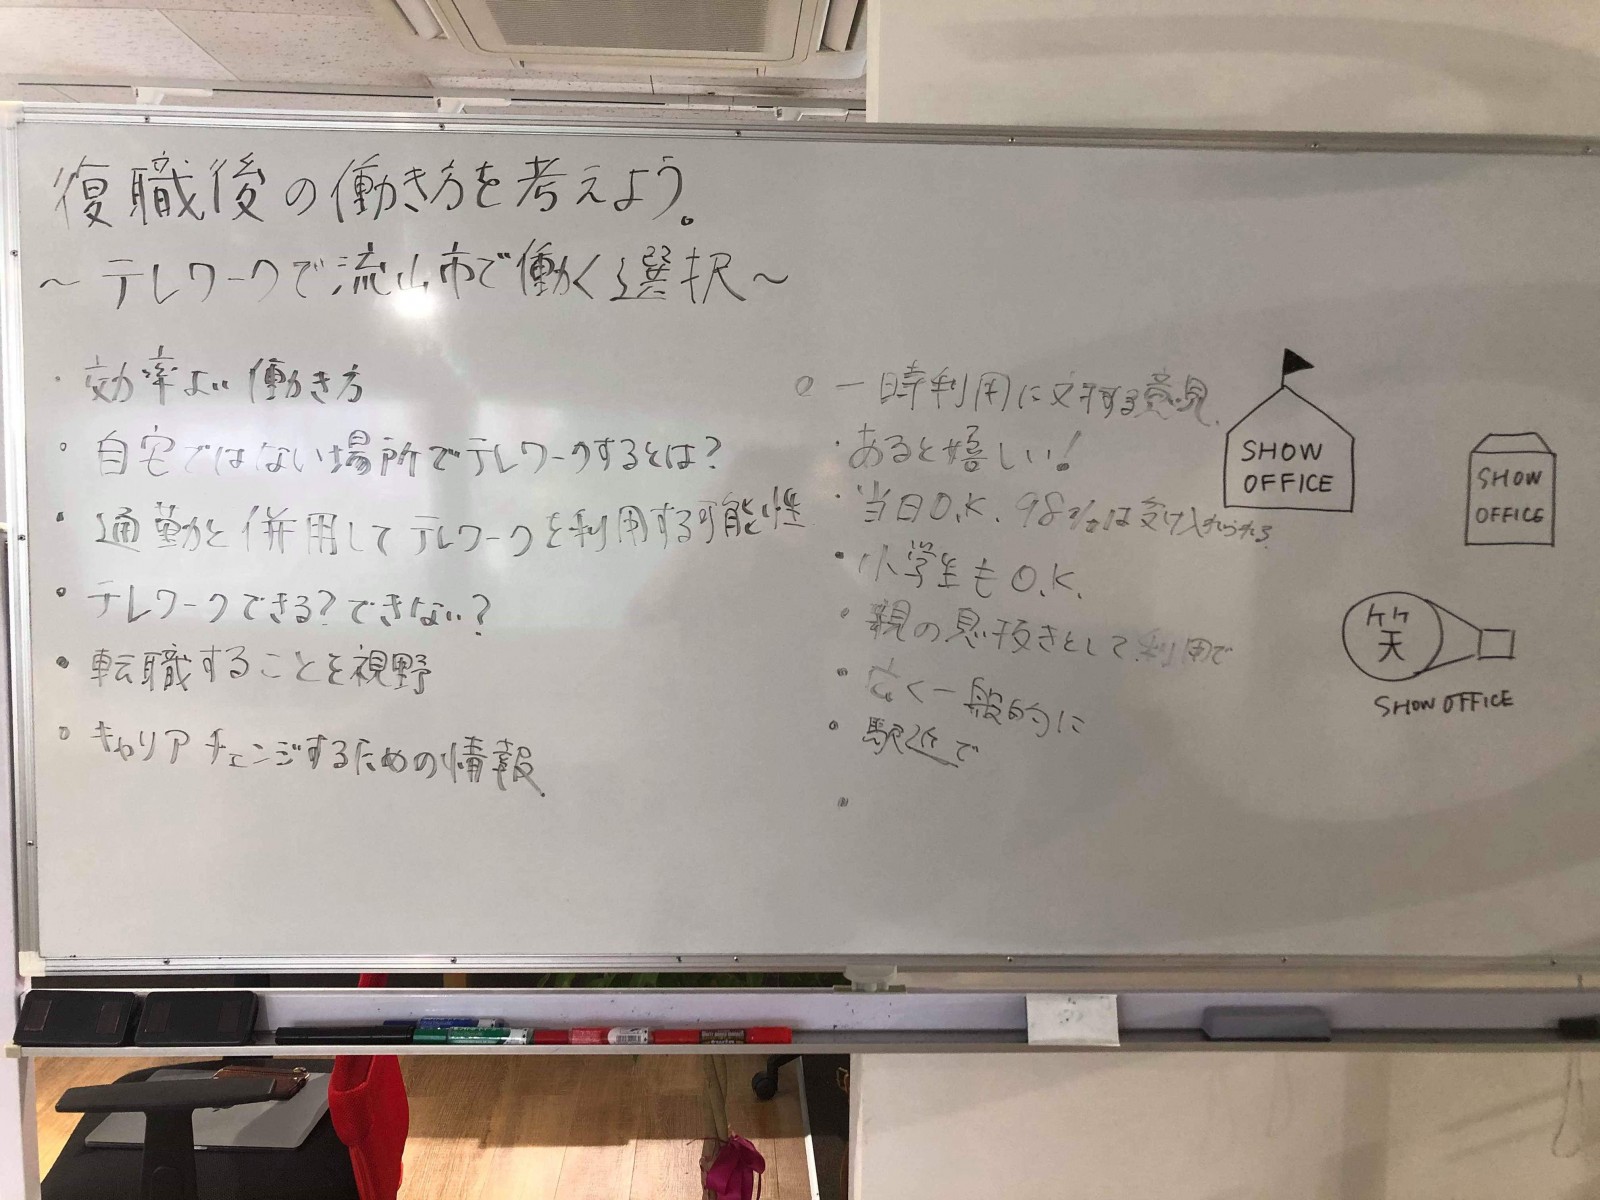 復職後の働き方を考えよう。
～テレワークで流山市で働く選択～
・効率よい働き方
・自宅ではない場所でテレワークするとは?
・通勤と併用してテレワークを利用する可能性
・テレワークできる?できない?
・転職することを視野
・キャリアチェンジするための情報.
○一時利用に対する意見.
・あると嬉しい!
・当日O.K. 98%は受け入れられる.
・小学生もO.K.
・親の息抜きとして利用で
・広く一般的に
・駅近で
・
SHOW
OFFICE
SHOW
OFFICE
笑
SHOW OFFICE